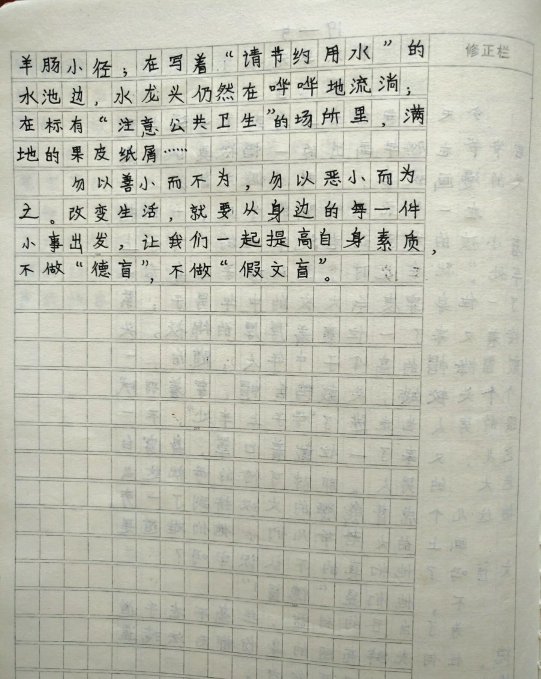 修正栏
羊肠小径；在写着“请节约用水”的
水池边，水龙头仍然在哗哗地流淌；
在标有“注意公共卫生”的场所里，满
地的果皮纸屑……
勿以善小而不为，勿以恶小而为
之。改变生活，就要从身边的每一件
小事出发，让我们一起提高自身素质，
不做“德盲”，不做“假文盲”。